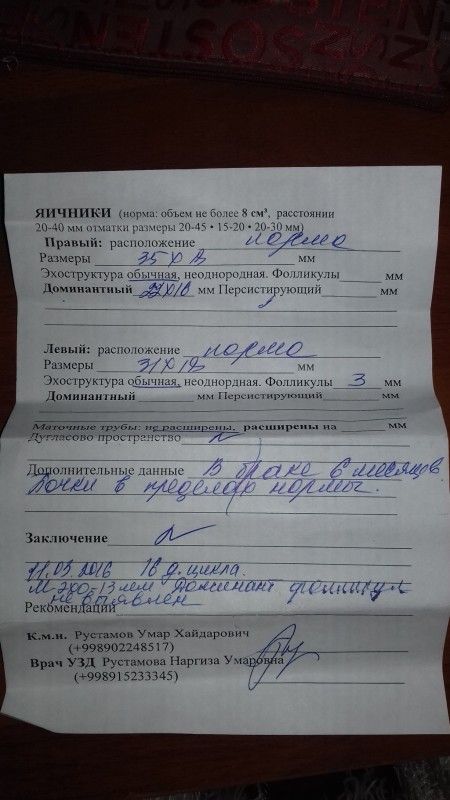 SZOSTEN
ЯИЧНИКИ (норма: объем не более 8 см³, расстоянии
20-40 мм отматки размеры 20-45 • 15-20 • 20-30 мм)
Правый: расположение норма
Размеры 35 х мм
Эхоструктура обычная, неоднородная. Фолликулы мм
Доминантный мм Персистирующий мм
Левый: расположение норма
Размеры 31х18 мм
Эхоструктура обычная, неоднрдная. Фолликулы 3 мм
Доминантный мм Персистирующий мм
Маточные трубы: не расширены, расширены на мм
Дугласово пространство N
Дополнительные данные В браке 6 месяцев
Почки в пределах нормы.
Заключение N
11.03.2016 16 д. цикла.
М эхо-13 мм Доминант фолликул
Рекомендации не выявлен
К.м.н. Рустамов Умар Хайдарович
(+998902248517)
Врач УЗД Рустамова Наргиза Умаровна
(+998915233345)